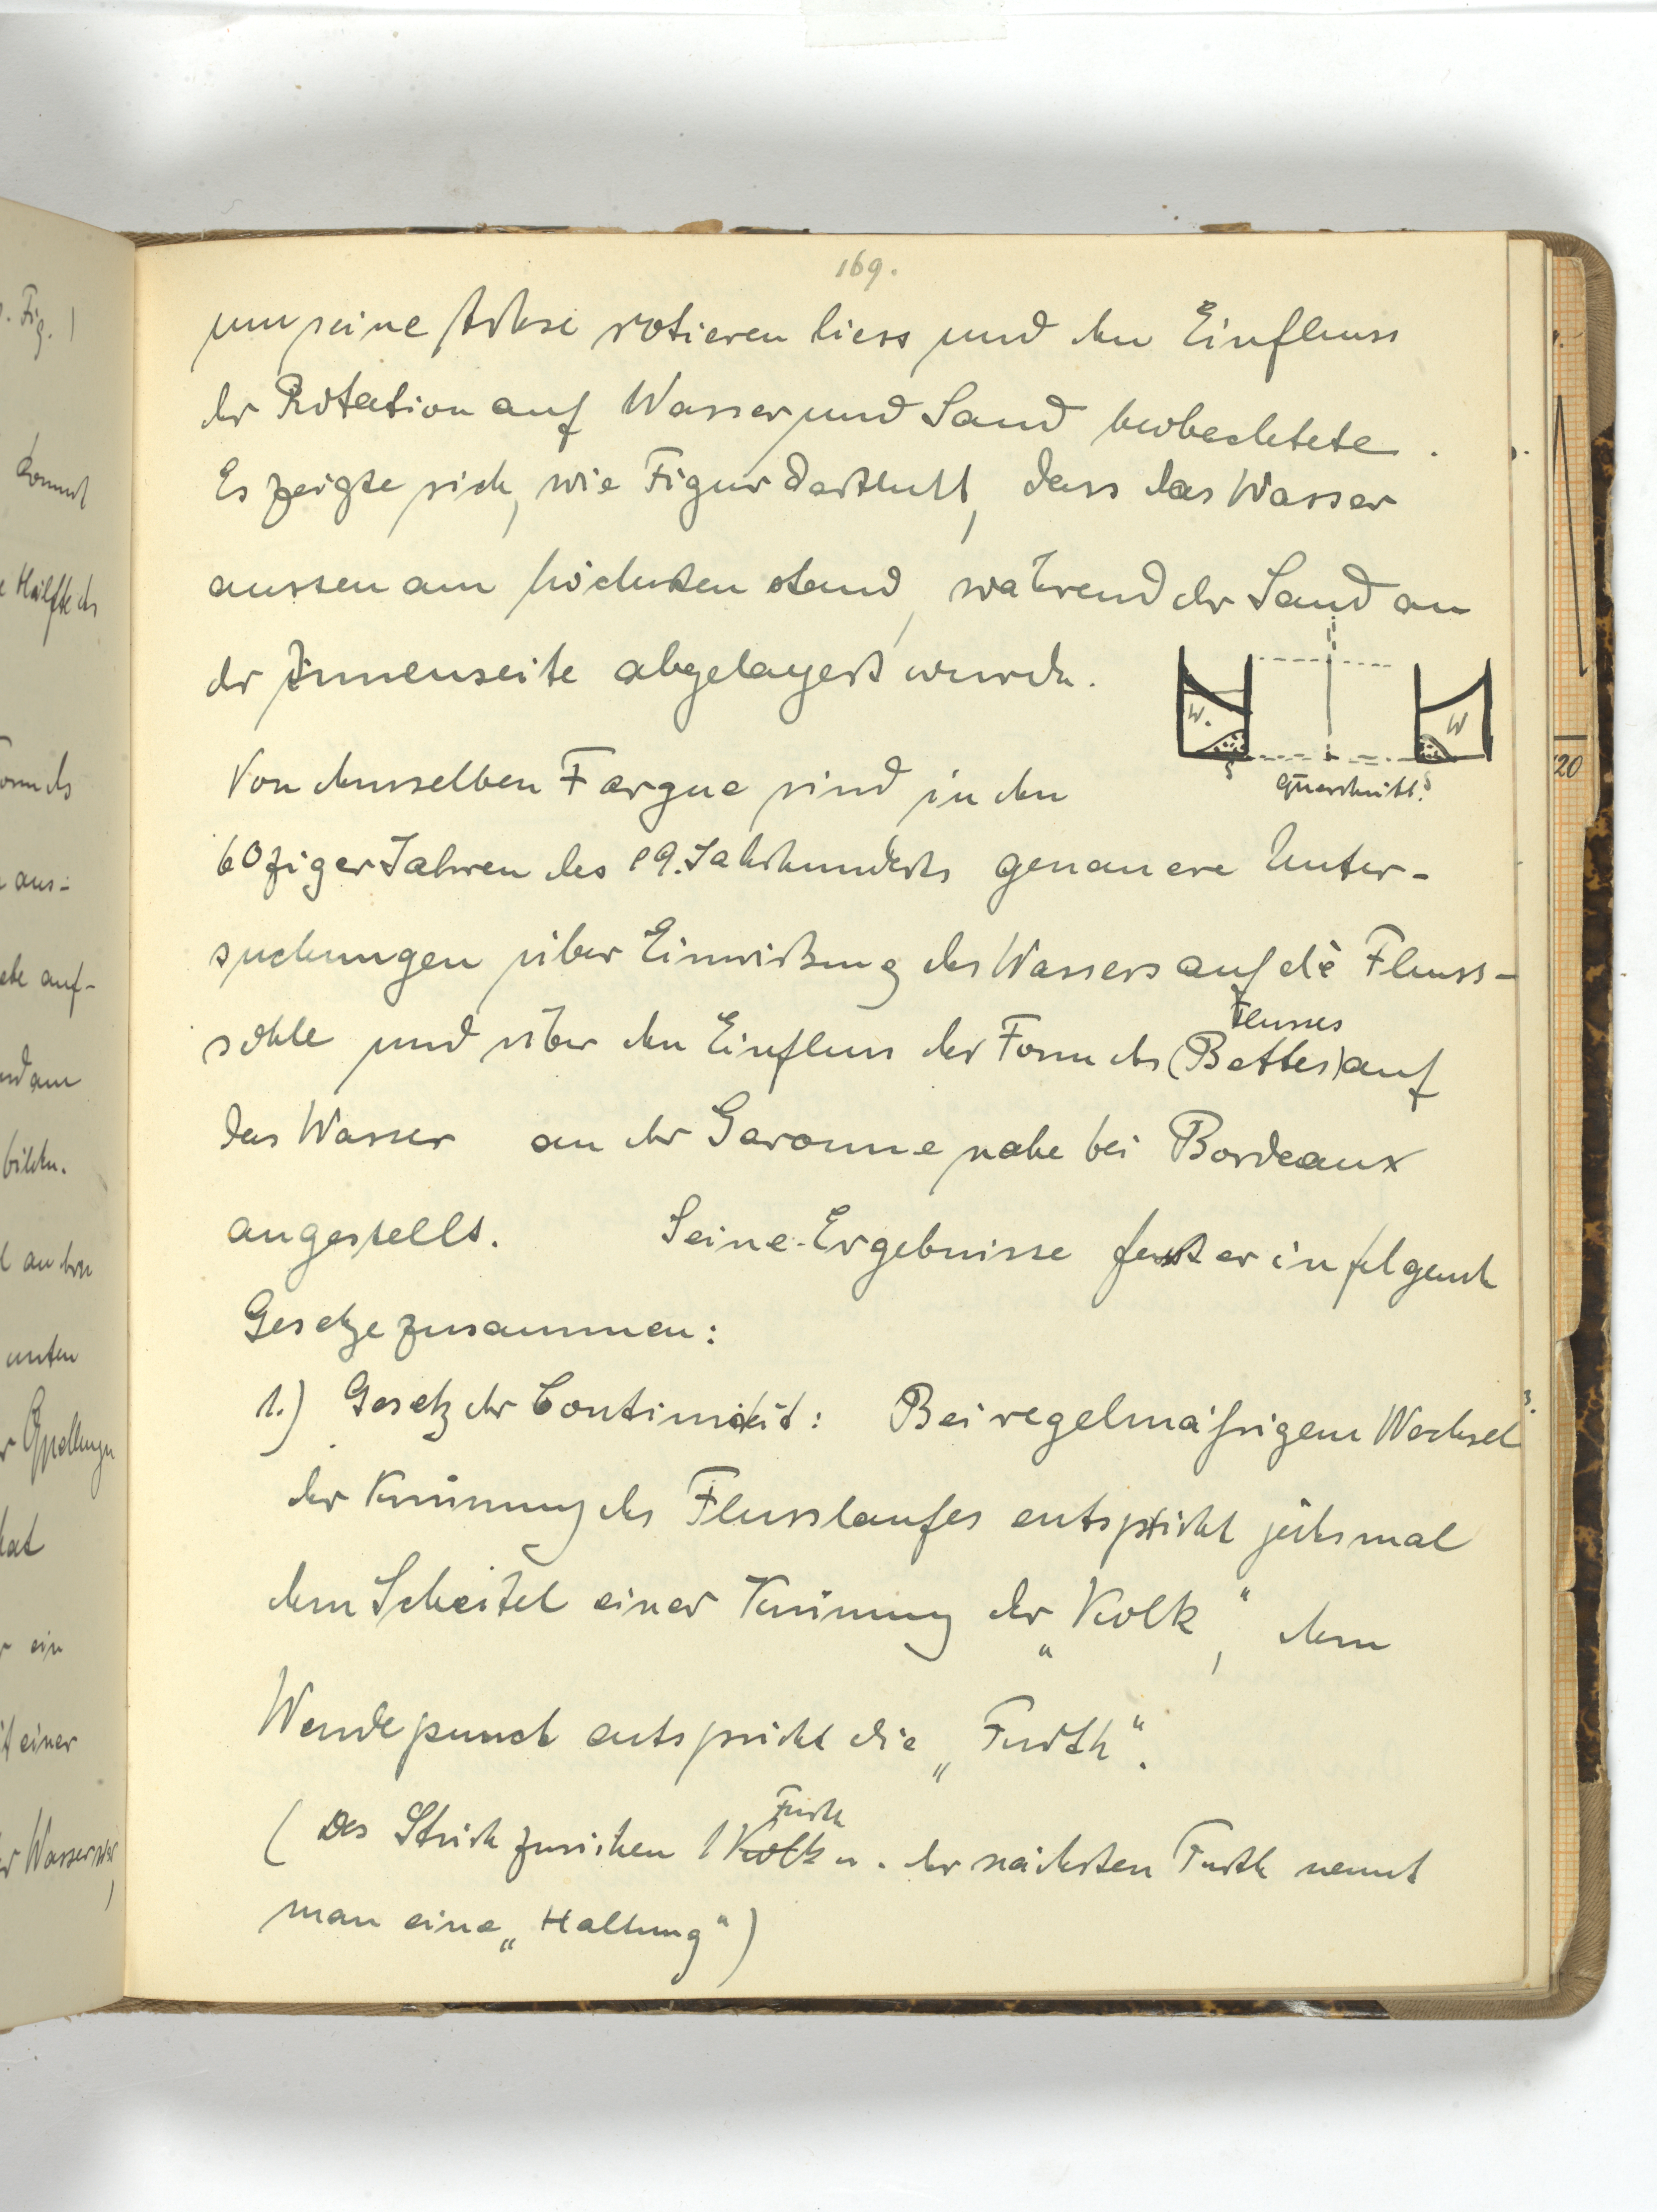 169.
um seine Achse rotieren liess und den Einfluss
der Rotation auf Wasser und Sand beobachtete.
Es zeigte sich, wie Figur darthutt, dass das Wasser
aussen am höchsten stand, während der Sand an
der Innenseite abgelagert wurde.
W.
W
S
S
Querschnitt.
Von demselben Fargue sind in den
60ziger Jahren des 19. Jahrhunderts genauere Unter-
suchungen über Einwirkung des Wassers auf die Fluss-
Flusses
sohle und über den Einfluss der Form des (Bettes) auf
das Wasser an der Garonne nahe bei Bordeaux
angestellt. Seine Ergebnisse fasst er in folgende
Gesetze zusammen:
1.) Gesetz der Continuität: Bei regelmäßigem Wechsel
der Krümung des Flusslaufes entspricht jedesmal
dem Scheitel einer Krümung der „Kolk", dem
Wendepunct entspricht die „Furth".
Furth
(Das Stück zwischen 1 Kolk u. der nächsten Furth nennt
man eine „Haltung")
. Fig. 1
kommt
e Hälfte des
aus-
auf-
bilden.
unten
hat
ein
einer
20